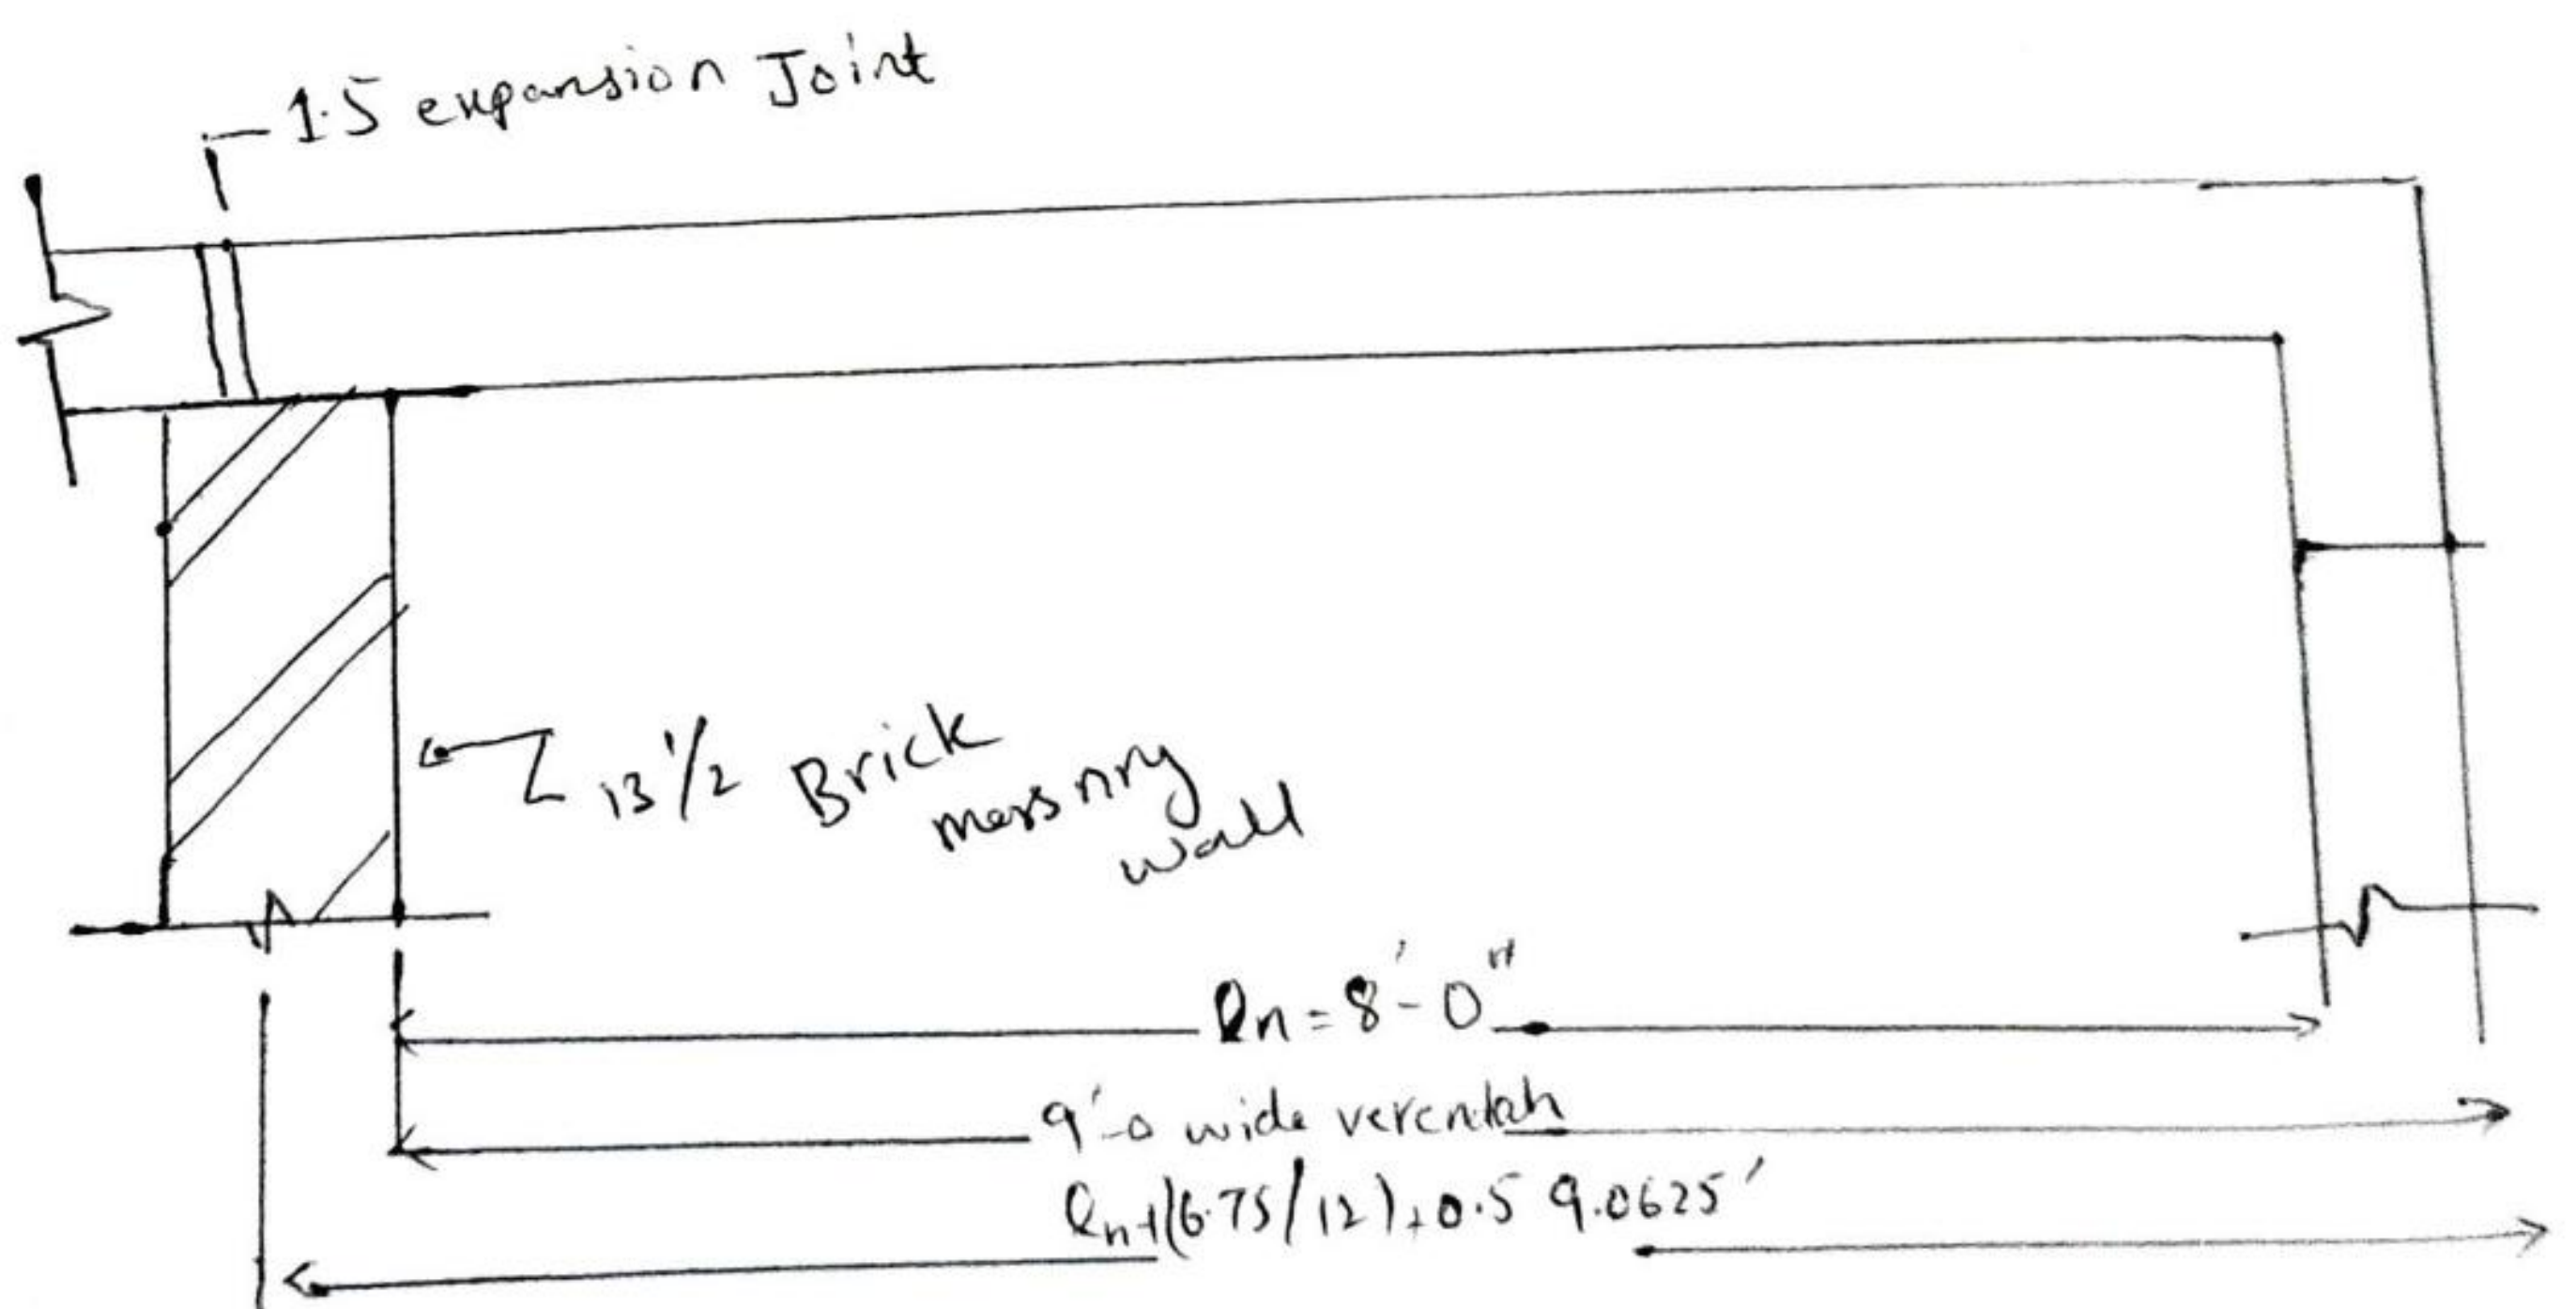 1.5 expansion Joint
13 1/2 Brick
masnry
wall
ln = 8'-0"
9'-0 wide verentah
ln+(6.75/12)+0.5 9.0625'